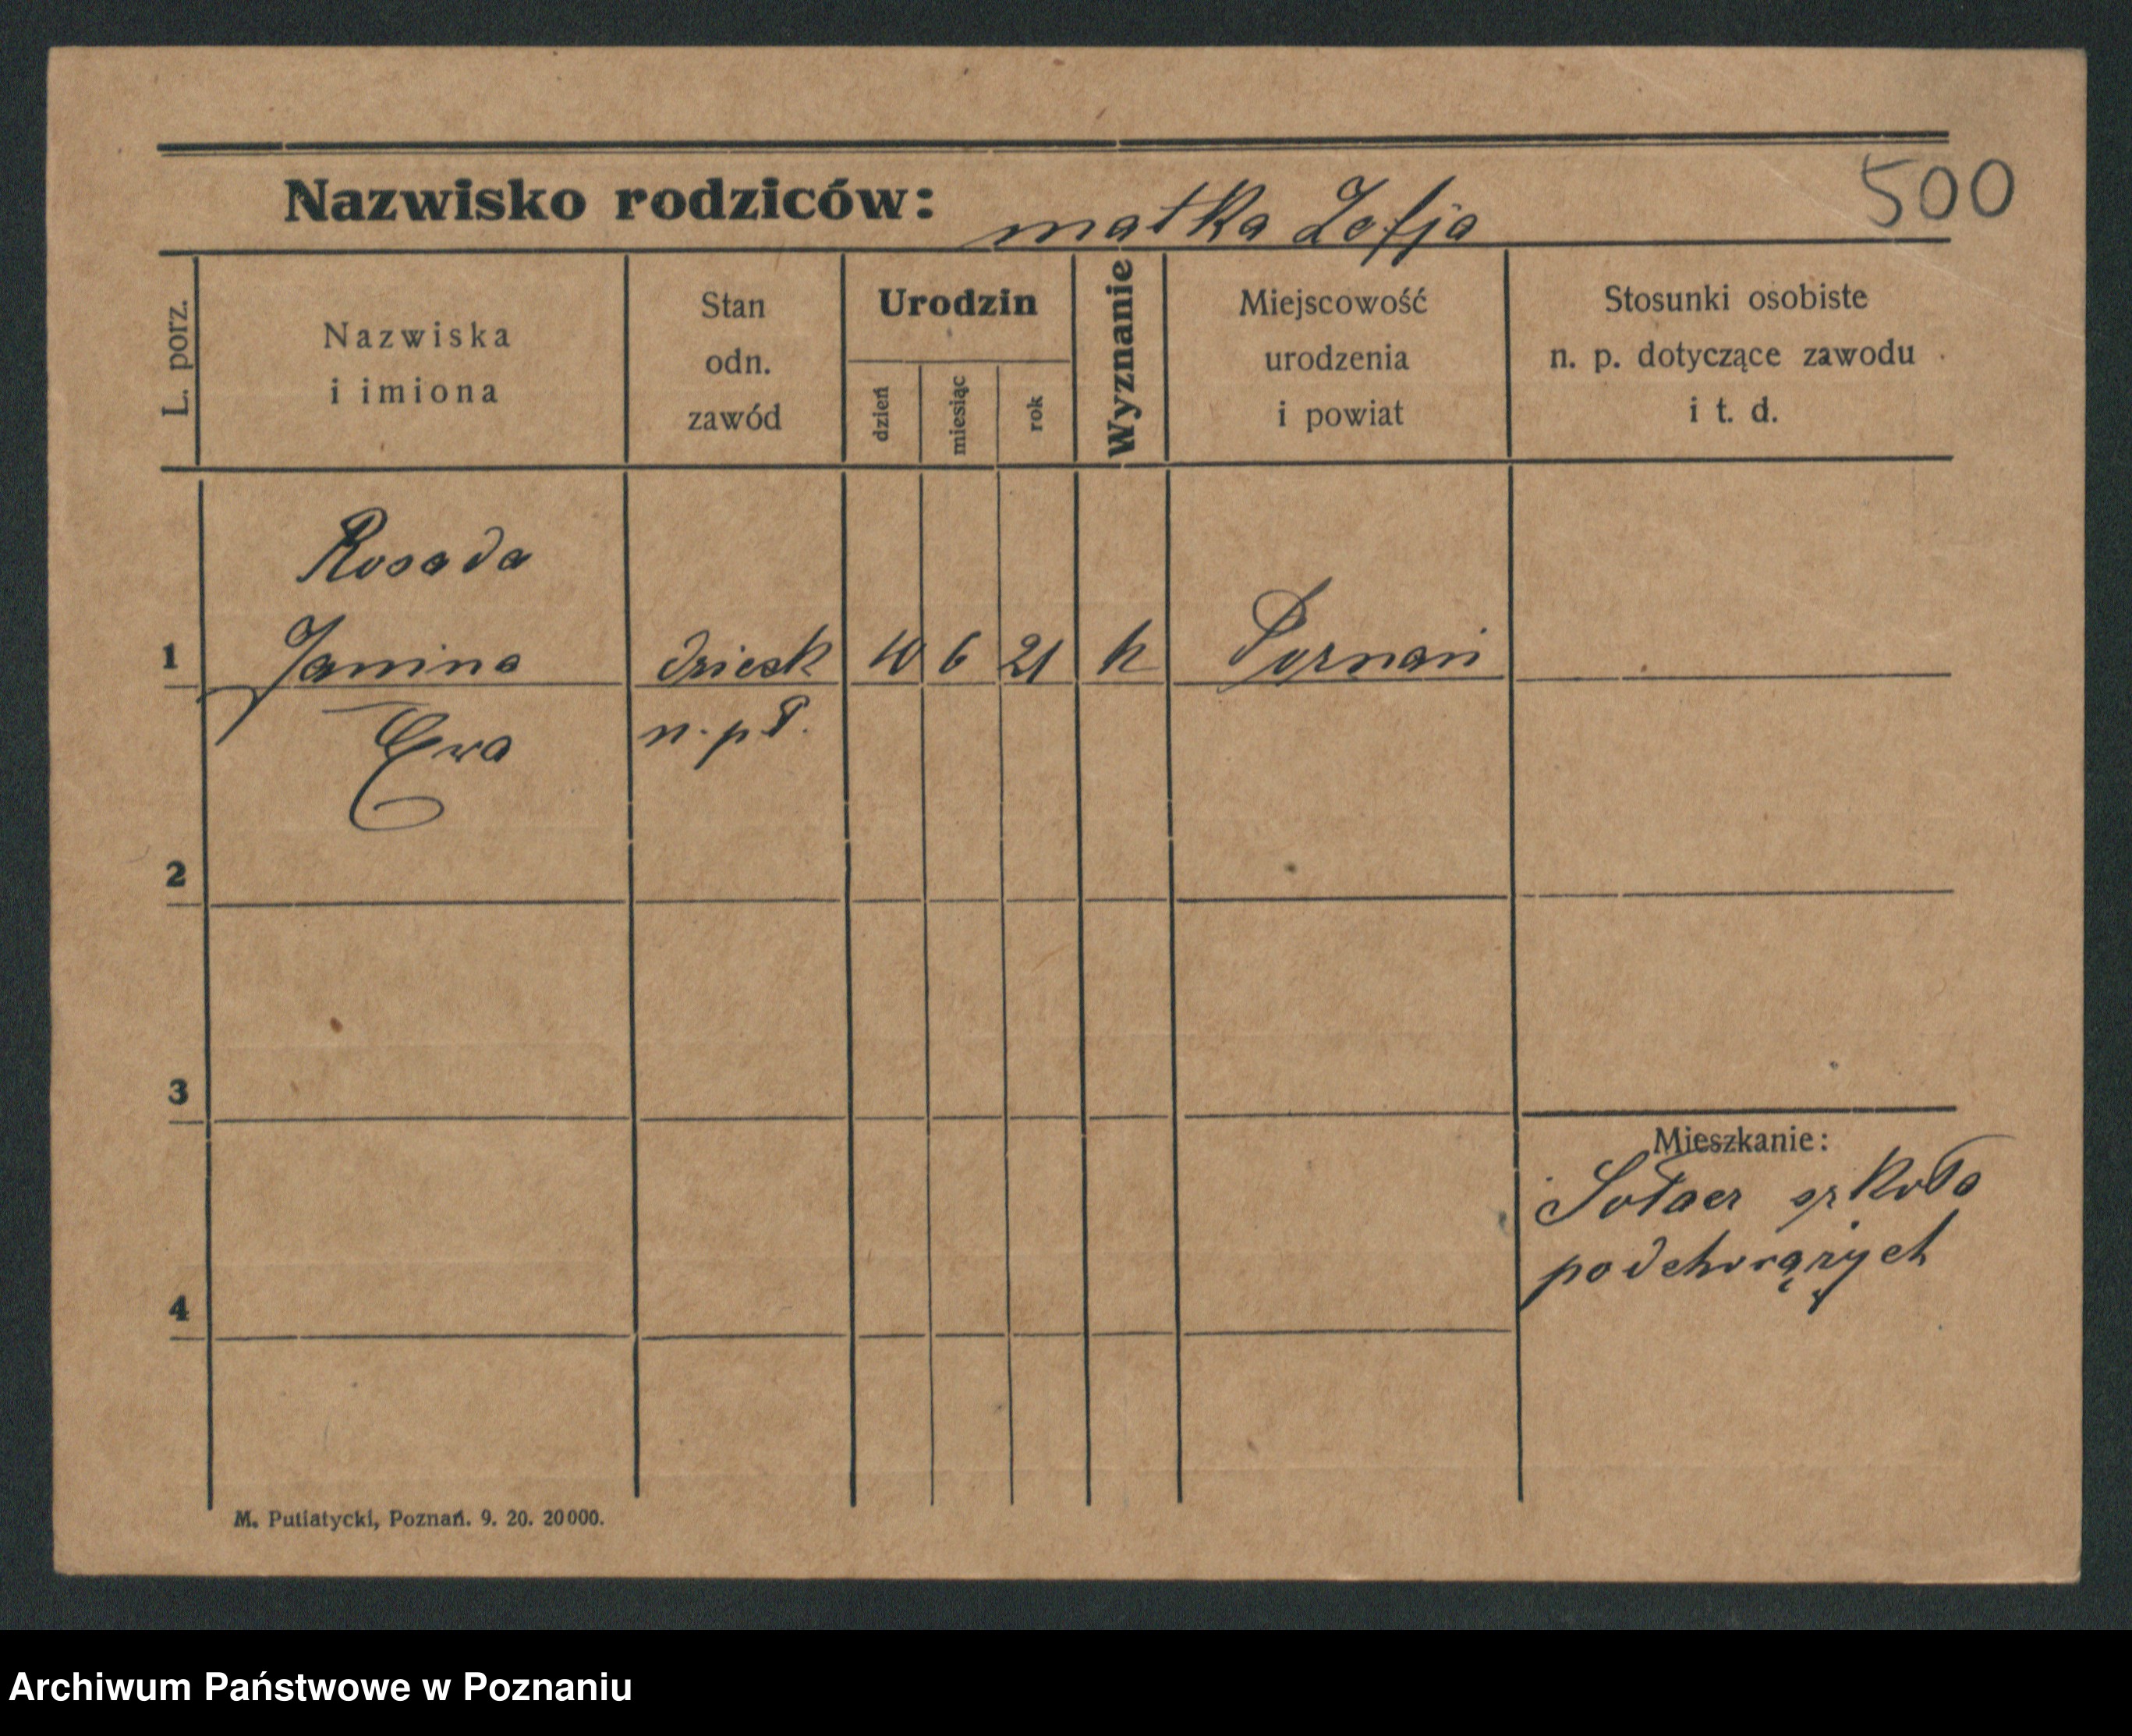 500
Nazwisko rodziców: matka Zofja
L. porz.
Nazwiska
i imiona
Stan
odn.
zawód
Urodzin
dzień
miesiąc
rok
Wyznanie
Miejscowość
urodzenia
i powiat
Stosunki osobiste
n. p. dotyczące zawodu
i t. d.
Rosada
1 Janina dzieck 10 6 21 k Poznań
Ewa n. pł.
2
3
Mieszkanie:
Sołacz szkoła
podchorążych
4
M. Putiatycki, Poznań. 9. 20. 20000.
Archiwum Państwowe w Poznaniu